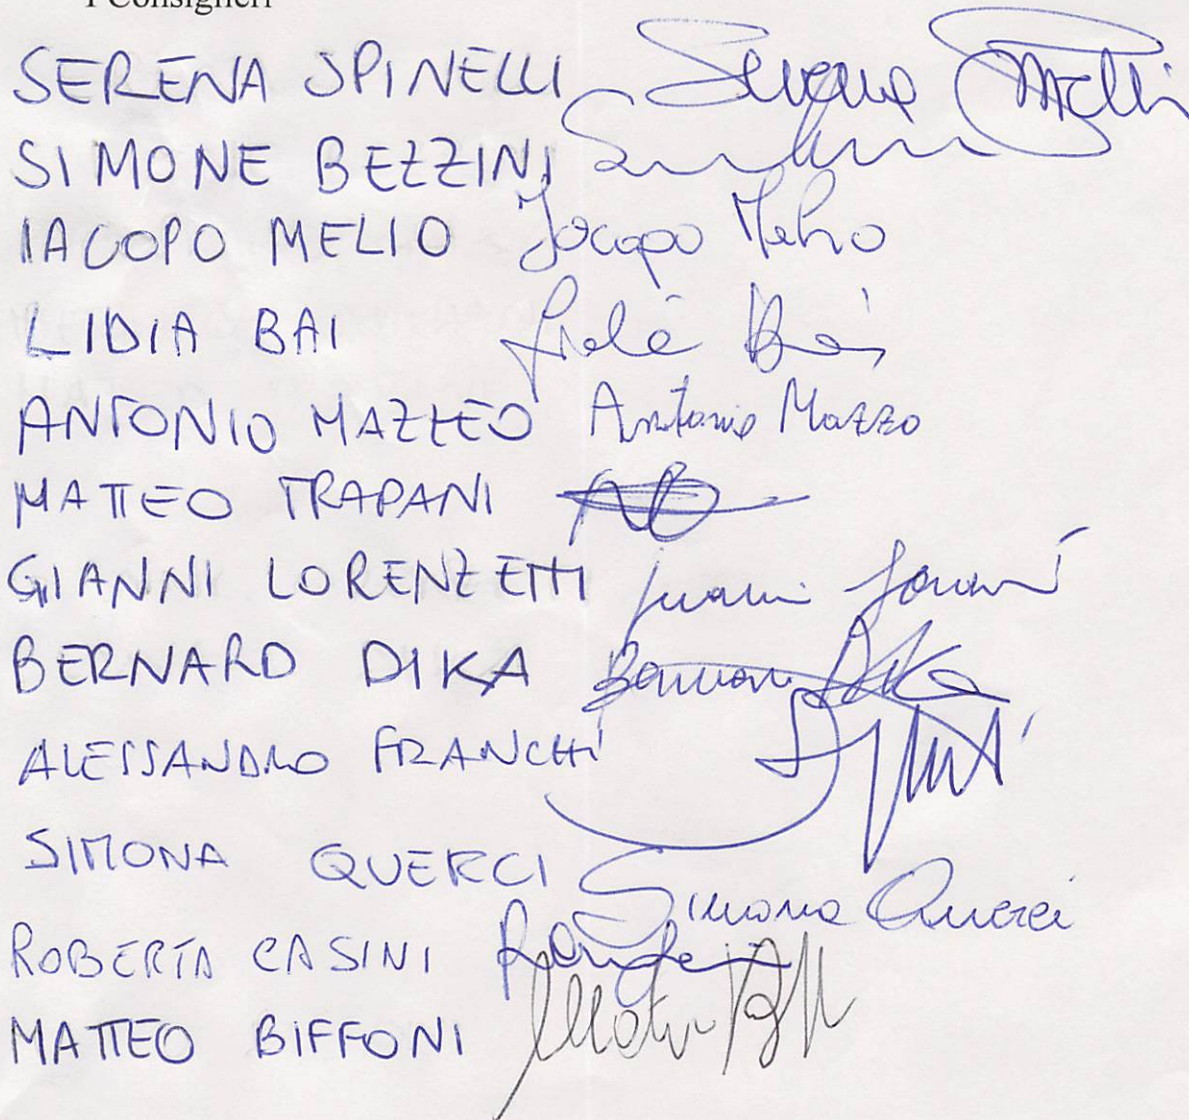 I Consiglieri
SERENA SPINELLI Serena Spinelli
SIMONE BEZZINI
IACOPO MELIO Iacopo Melio
LIDIA BAI Lidia Bai
ANTONIO MAZZEO Antonio Mazzeo
MATTEO TRAPANI
GIANNI LORENZETTI
BERNARD DIKA Bernard Dika
ALESSANDRO FRANCHI
SIMONA QUERCI Simona Querci
ROBERTA CASINI
MATTEO BIFFONI